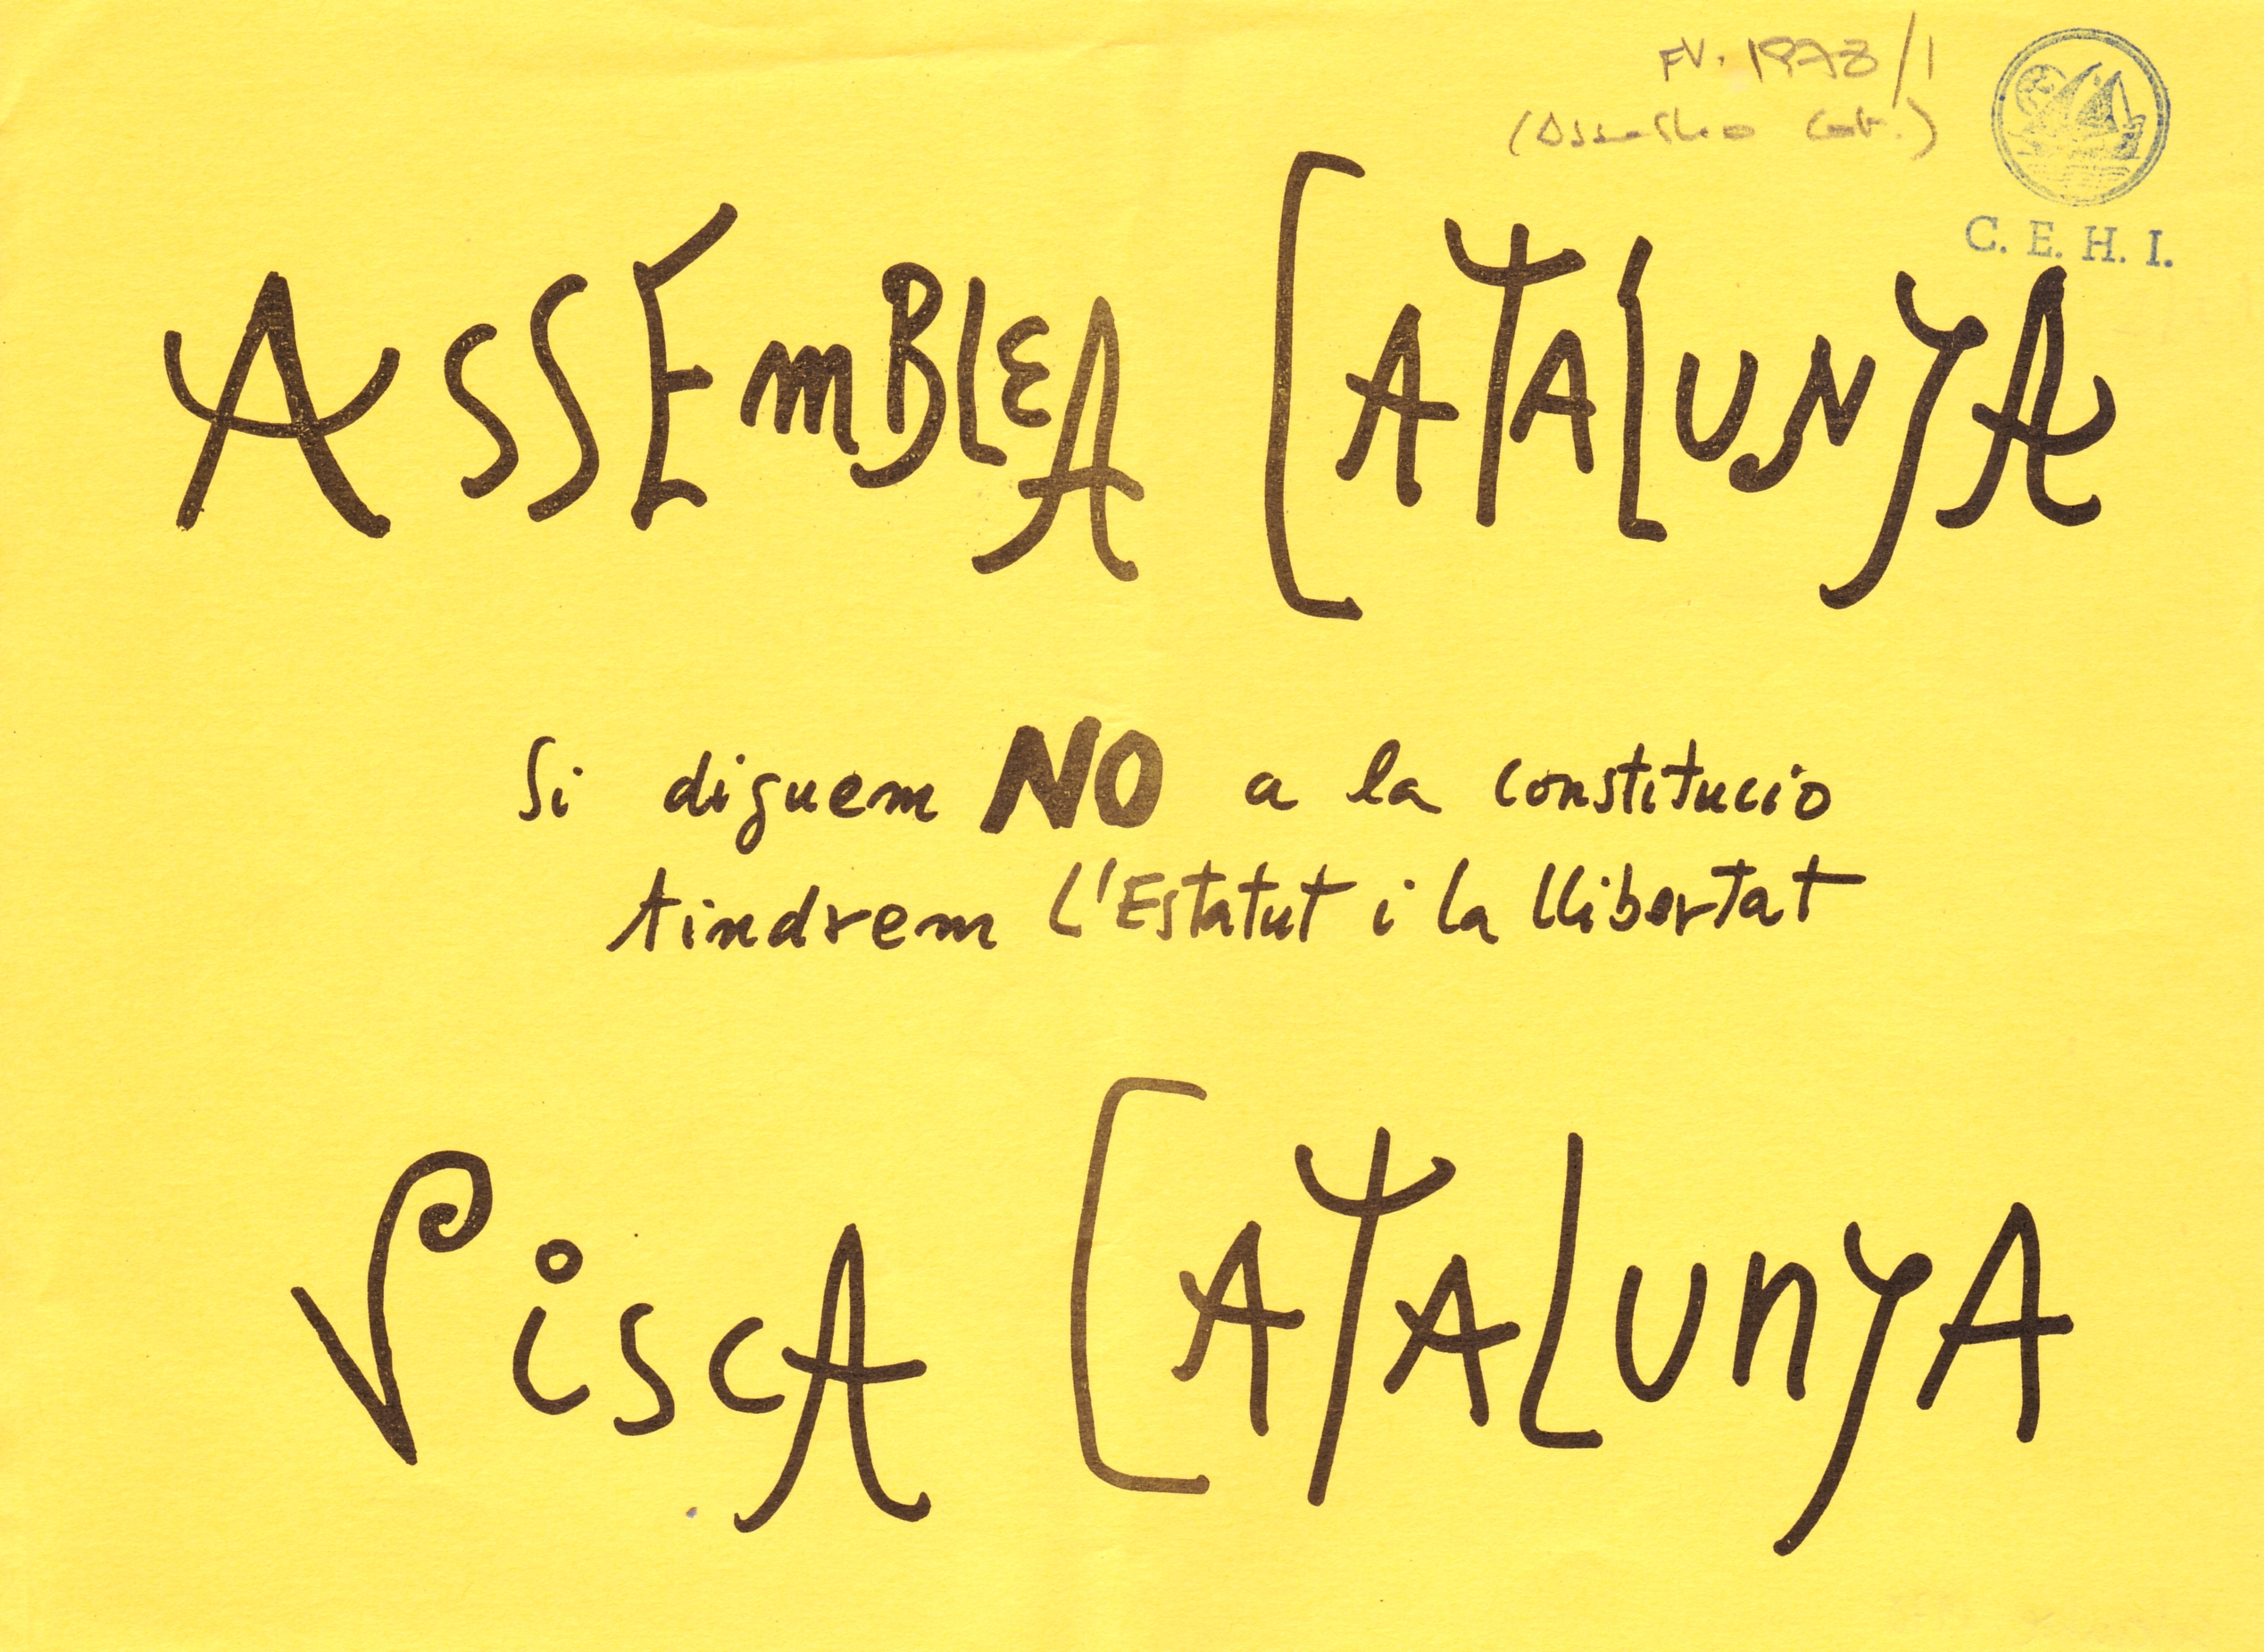 FV. 1978/1
(Assemblea Cat.)
C. E. H. I.
ASSEmBLEA CATALUNYA
Si diguem NO a la constitucio
tindrem L'Estatut i la llibertat
ViscA CATALUnyA